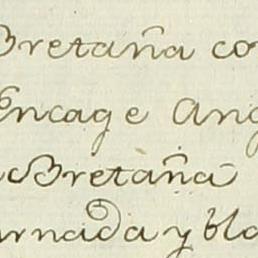 Bretaña co
Encage Ang
Bretaña
urnada y bla